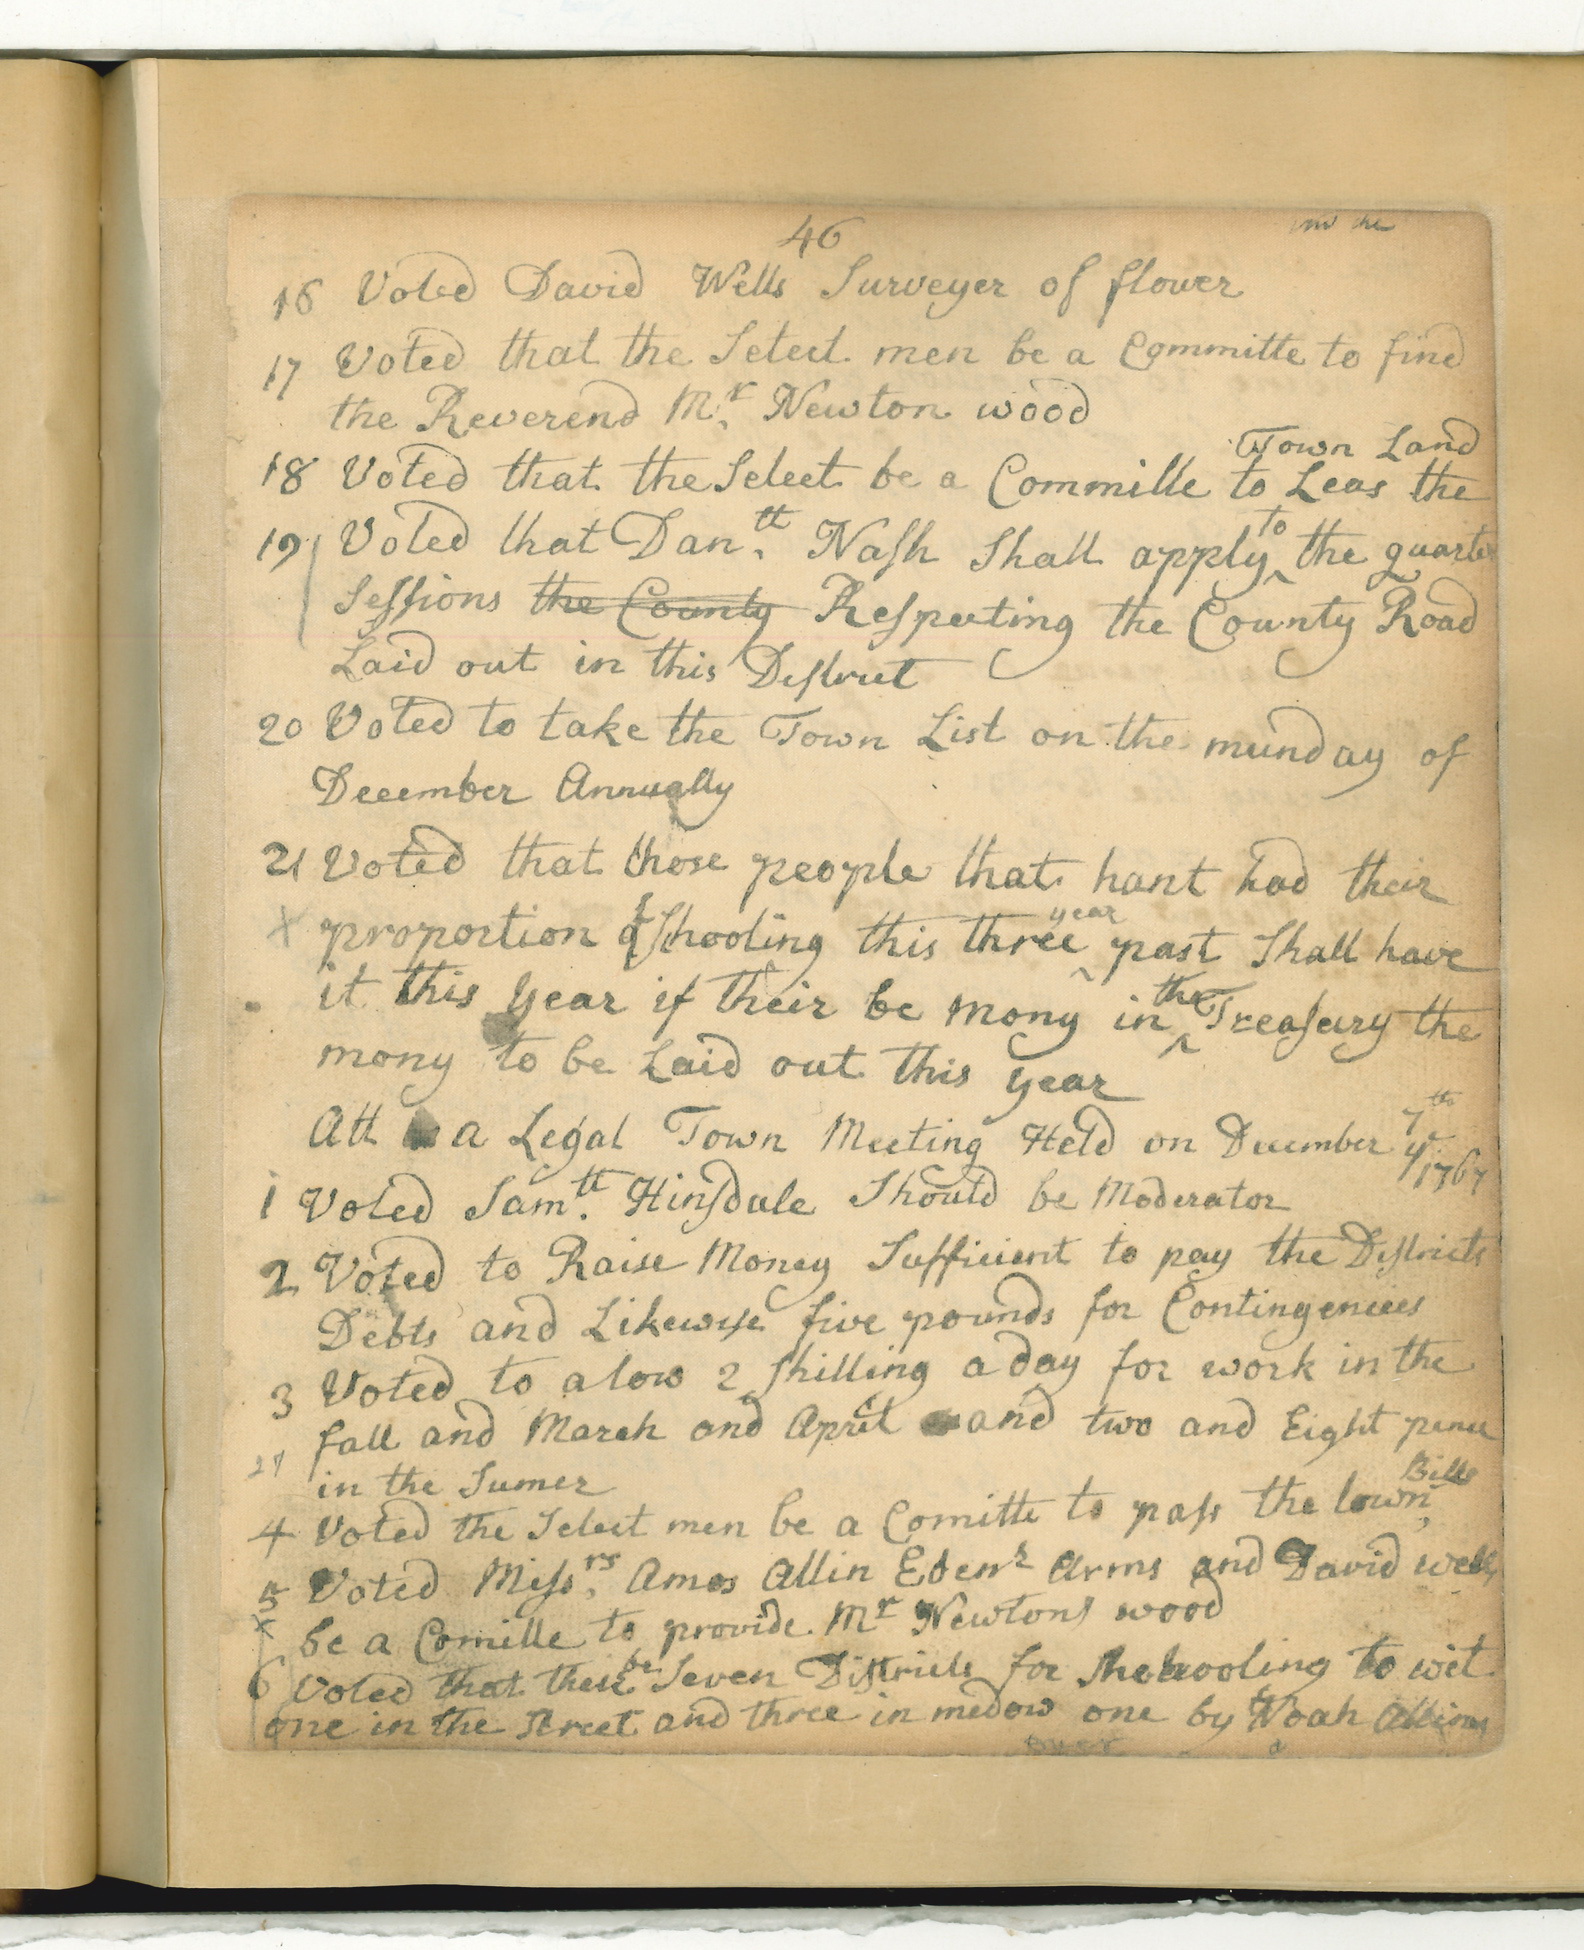 46
16 Voted David Wells Surveyer of flower
17 Voted that the Select men be a Committe to find
the Reverend Mr. Newton wood
Town Land
18 Voted that the Select be a Committe to Leas the
19 Voted that Danll. Nash Shall apply to the quarter
Sessions the County Respecting the County Road
Laid out in this Destrict
20 Voted to take the Town List on the munday of
December Annually
21 Voted that those people that hant had their
proportion of Schooling this three year past Shall have
it this year if their be mony in the Treasury the
mony to be Laid out this year
Att a Legal Town Meeting Held on December 7th 1767
1 Voted Samll. Hinsdale Should be Moderator
2 Voted to Raise Money Sufficient to pay the Districts
Debts and Likewise five pounds for Contingencies
3 Voted to alow 2 shilling a day for work in the
fall and March and April and two and Eight pence
in the Sumer
4 Voted the Select men be a Comitte to pass the town Bills
5 Voted Missrs. Amos Allin Ebenr Arms and David wells
be a Comitte to provide Mr Newtons wood
6 Voted that their be Seven Districts for Schooling to wit
one in the Street and three in medow one by Noah Allins
over